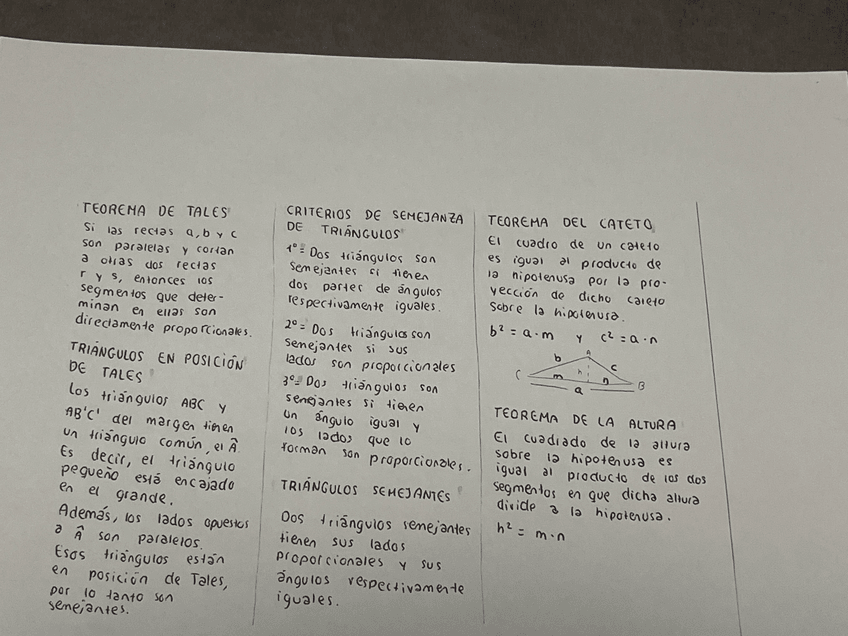 TEOREMA DE TALES
Si las rectas a, b y c
son paralelas y cortan
a otras dos rectas
r y s, entonces los
segmentos que deter-
minan en ellas son
directamente proporcionales.
TRIÁNGULOS EN POSICIÓN
DE TALES
Los triángulos ABC y
AB'C' del margen tienen
un triángulo común, el Â
Es decir, el triángulo
pequeño está encajado
en el grande.
Además, los lados opuestos
a Â son paralelos.
Esos triángulos están
en posición de Tales,
por lo tanto son
semejantes.
CRITERIOS DE SEMEJANZA
DE TRIÁNGULOS
1º= Dos triángulos son
semejantes si tienen
dos partes de ángulos
respectivamente iguales.
2º= Dos triángulos son
semejantes si sus
lados son proporcionales
3º= Dos triángulos son
semejantes si tienen
un ángulo igual y
los lados que lo
forman son proporcionales.
TRIÁNGULOS SEMEJANTES
Dos triángulos semejantes
tienen sus lados
proporcionales y sus
ángulos respectivamente
iguales.
TEOREMA DEL CATETO
El cuadro de un cateto
es igual al producto de
la hipotenusa por la pro-
yección de dicho cateto
sobre la hipotenusa.
b² = a·m y c² = a·n
A
b
c
C
m
h
n
B
a
TEOREMA DE LA ALTURA
El cuadrado de la altura
sobre la hipotenusa es
igual al producto de los dos
segmentos en que dicha altura
divide a la hipotenusa.
h² = m·n